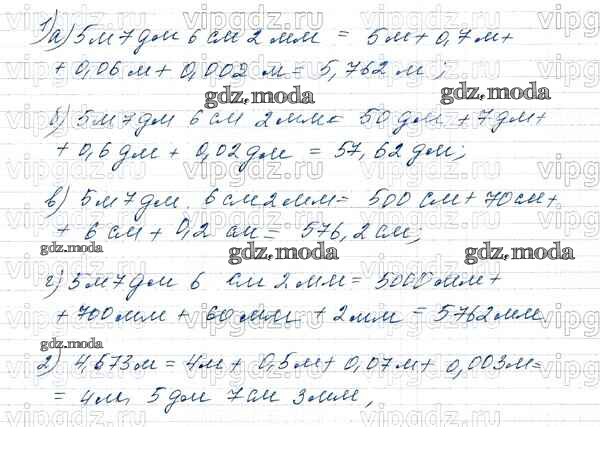 1) а) 5м 7дм 6см 2мм = 5м + 0,7м +
+ 0,06м + 0,002м = 5,762м;
gdz.moda gdz.moda
б) 5м 7дм 6см 2мм = 50дм + 7дм +
+ 0,6дм + 0,02дм = 57,62дм;
в) 5м 7дм 6см 2мм = 500см + 70см +
+ 6см + 0,2см = 576,2см;
gdz.moda gdz.moda gdz.moda
г) 5м 7дм 6см 2мм = 5000мм +
+ 700мм + 60мм + 2мм = 5762мм
gdz.moda
2) 4,673м = 4м + 0,5м + 0,07м + 0,003м =
= 4м, 5дм 7см 3мм,
vipgdz.ru